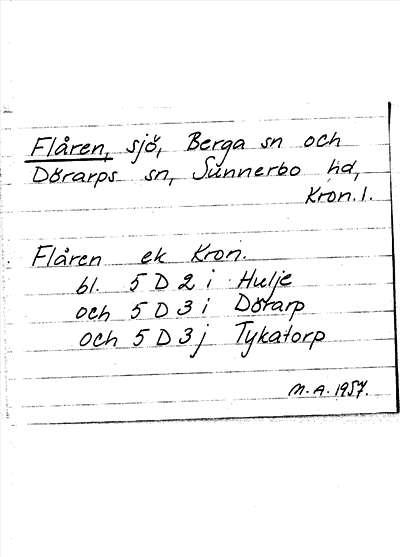 Flåren, sjö, Berga sn och
Dörarps sn, Sunnerbo hd,
Kron. l.
Flåren ek Kron.
bl. 5 D 2 i Hulje
och 5 D 3 i Dörarp
och 5 D 3 j Tykatorp
M. A. 1957.